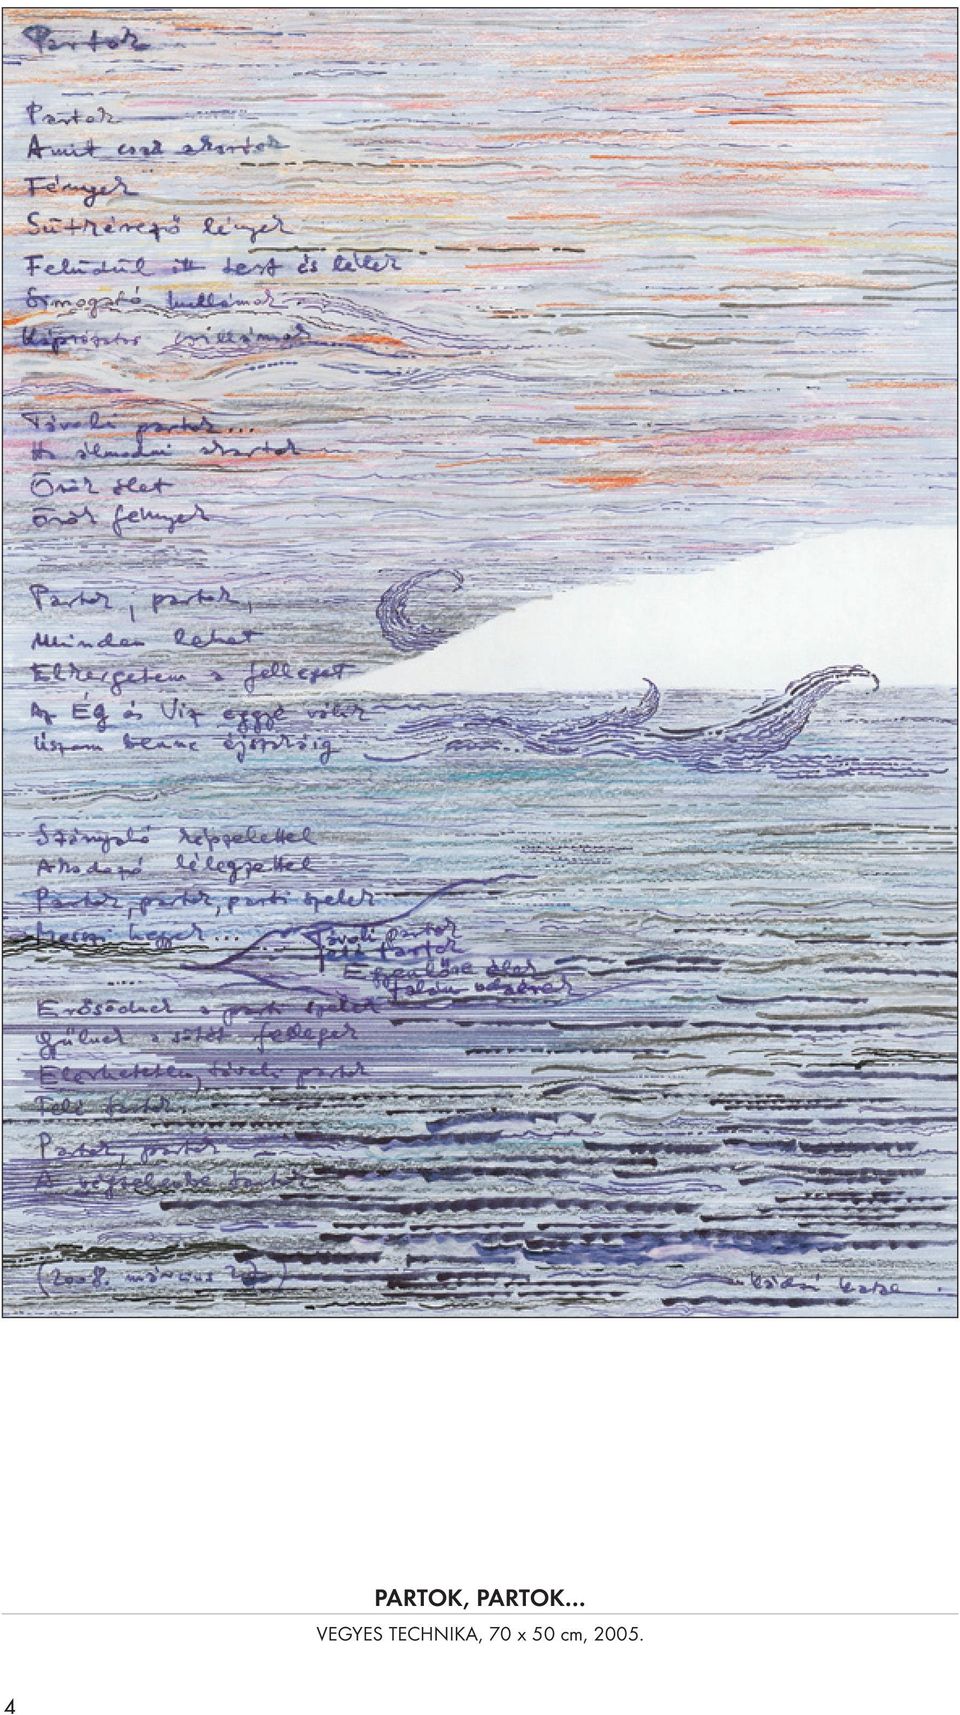 Partok
Partok
Amit csak akartok
Fények
Sütkérező lények
Felüdül itt test és lélek
Simogató hullámok
Káprázatos csillámok
Távoli partok...
Ha álmodni akartok
Örök élet
Örök fények
Partok, partok,
Minden lehet
Elkergetem a felleget
Az Ég és Víz eggyé válik
Úszom benne éjszakáig
Szárnyaló képzelettel
Akadozó lélegzettel
Partok, partok, parti szelek
Messzi hegyek...
Távoli partok
Felé tartok
Egyenlőre élek
Talán odaérek
Erősödnek a parti szelek
Gyűlnek a sötét fellegek
Elérhetetlen, távoli partok
Felé tartok.
Partok, partok
A végtelenbe tartok
(2008. március 27.)
Kádár Kata
PARTOK, PARTOK...
VEGYES TECHNIKA, 70 x 50 cm, 2005.
4